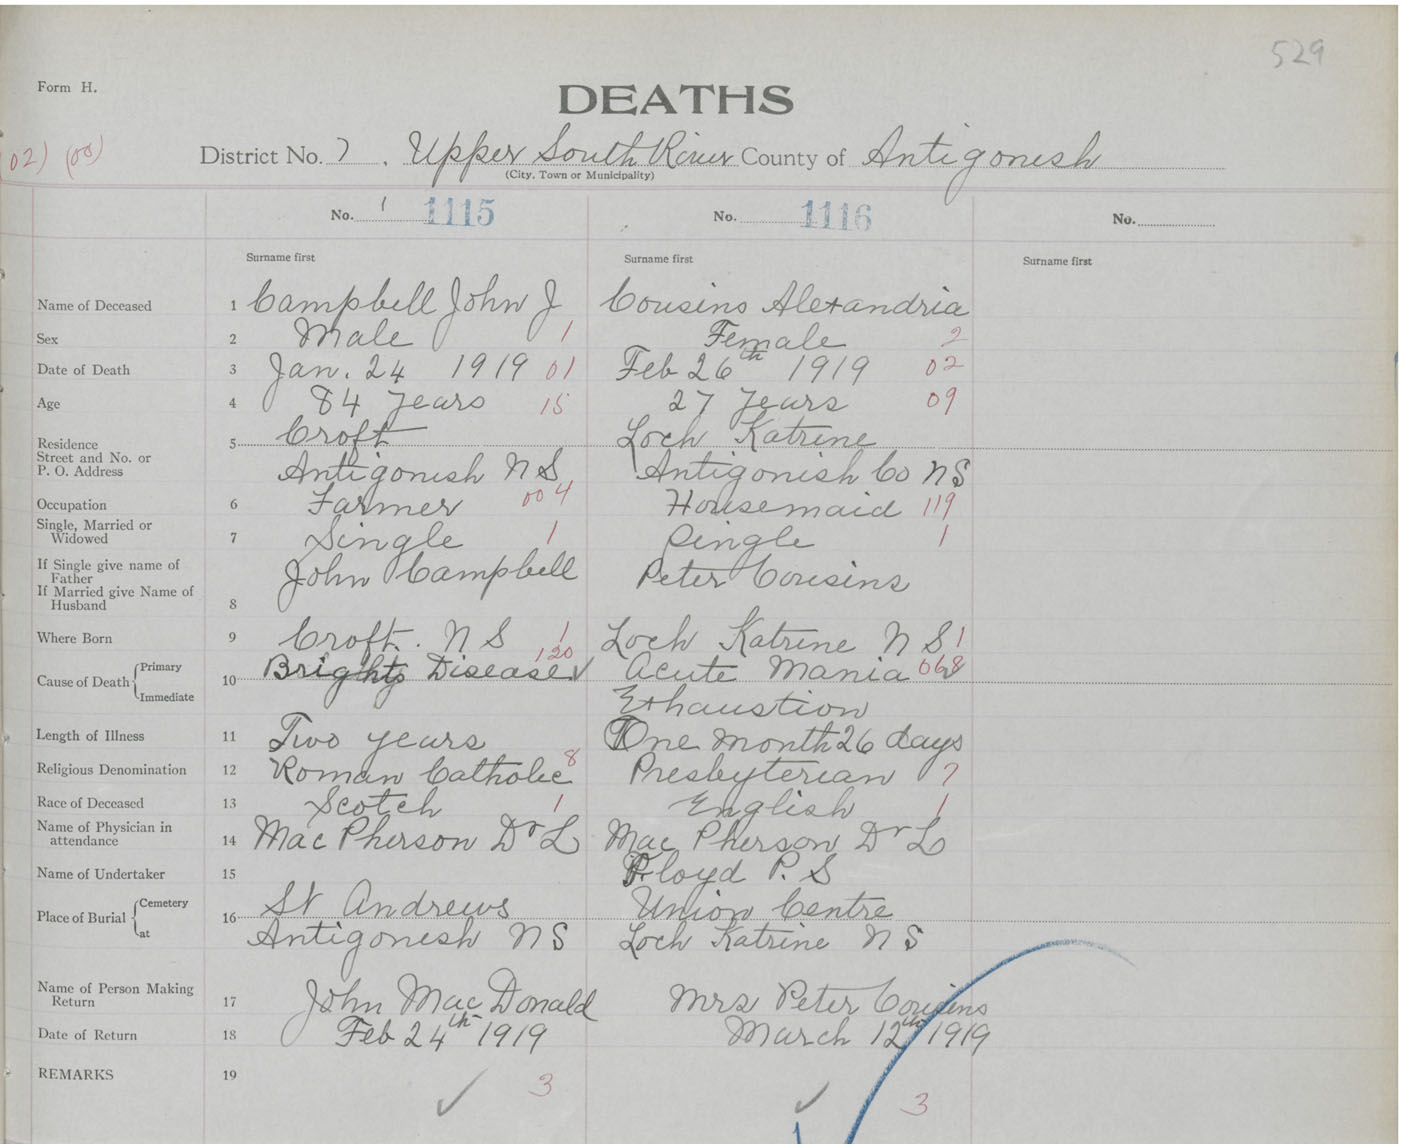 529
Form H.
DEATHS
02) (00)
District No. 7. Upper South River County of Antigonish
(City, Town or Municipality)
No. 1 1115 No. 1116 No.
Surname first Surname first Surname first
Name of Deceased 1 Campbell John J Cousins Alexandria
Sex 2 Male 1 Female 2
Date of Death 3 Jan. 24 1919 01 Feb 26th 1919 02
Age 4 84 years 15 27 years 09
Residence 5 Croft Loch Katrine
Street and No. or
P. O. Address Antigonish N S Antigonish Co N S
Occupation 6 Farmer 004 Housemaid 119
Single, Married or
Widowed 7 Single 1 Single 1
If Single give name of
Father John Campbell Peter Cousins
If Married give Name of
Husband 8
Where Born 9 Croft. N S 1 Loch Katrine N S 1
Cause of Death Primary 10 Brights Disease 120 Acute Mania 068
Immediate Exhaustion
Length of Illness 11 Two years One month 26 days
Religious Denomination 12 Roman Catholic 8 Presbyterian 7
Race of Deceased 13 Scotch 1 English 1
Name of Physician in
attendance 14 MacPherson Dr L MacPherson Dr L
Name of Undertaker 15 Floyd P. S
Place of Burial Cemetery 16 St Andrews Union Centre
at Antigonesh N S Loch Katrine N S
Name of Person Making
Return 17 John MacDonald Mrs Peter Cousins
Date of Return 18 Feb 24th 1919 March 12th 1919
REMARKS 19
3 3